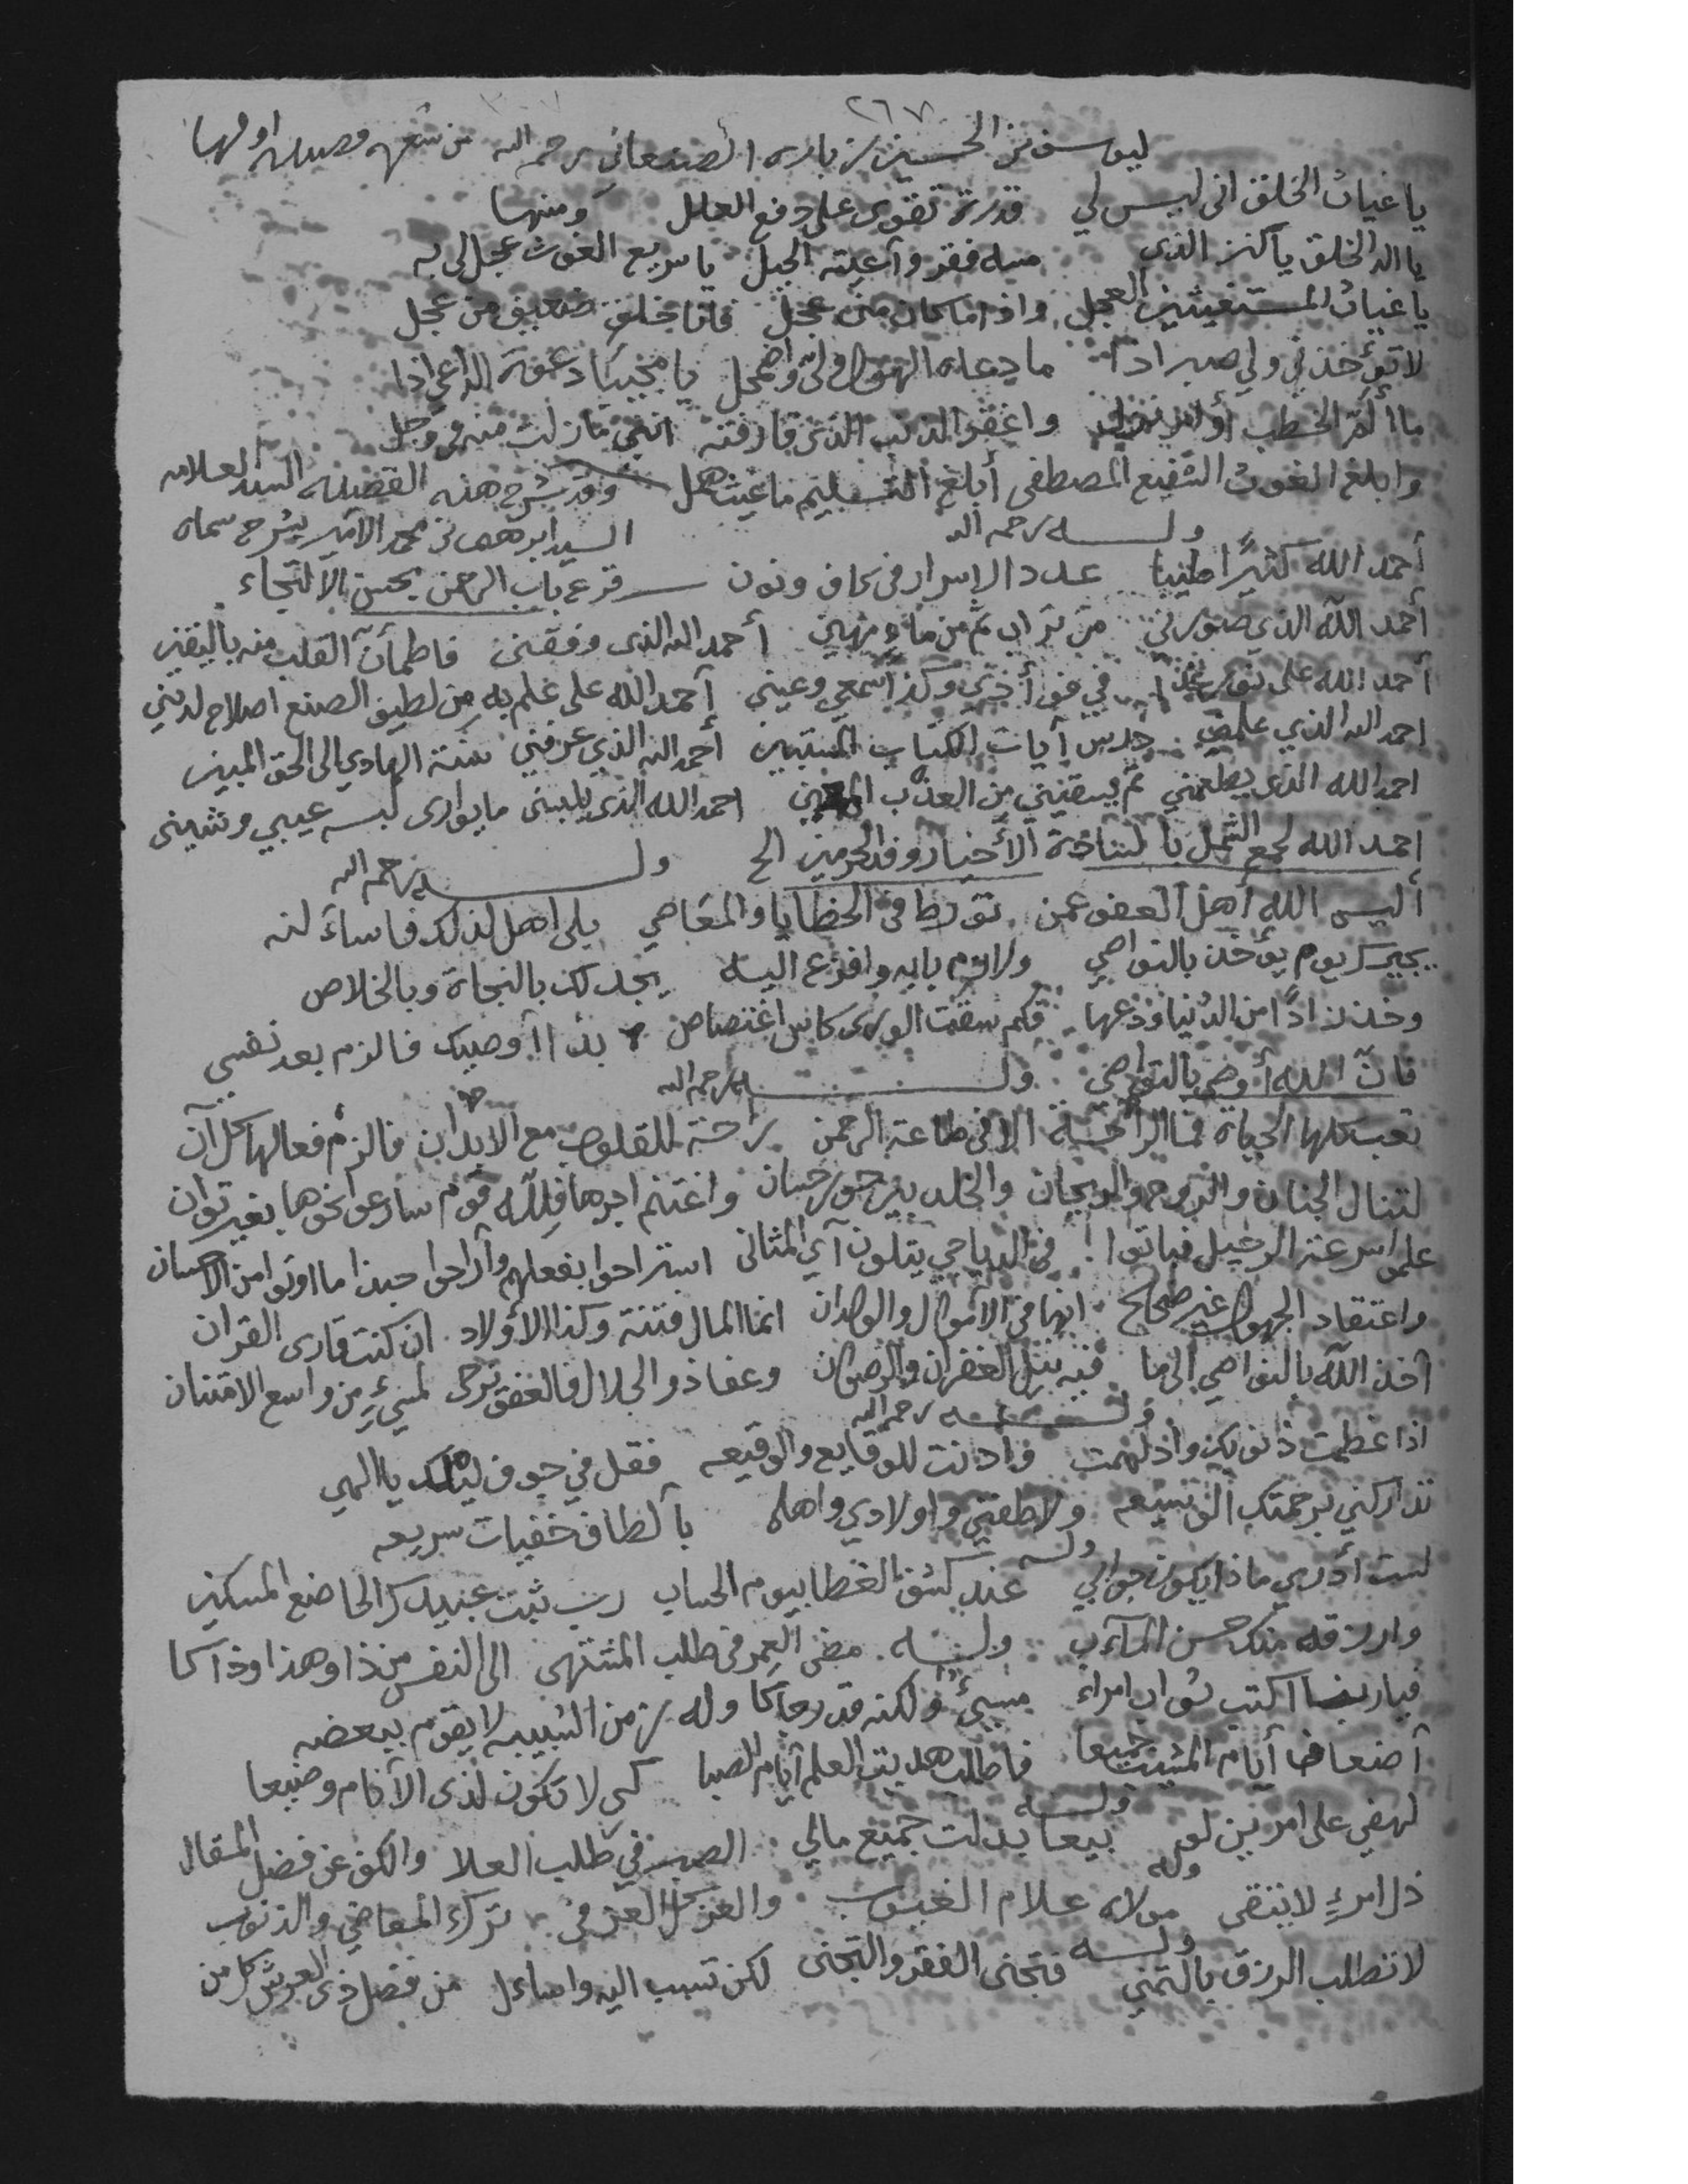 ٢٦٧
ليوسف بن الحسين زباره الصنعاني رحمه الله من شعره قصيده اولها
يا غياث الخلق انى ليس لي قدرة تقوى على دفع العلل ومنها
يا اله الخلق يا كنز الذى مسه فقر وأعيته الحيل يا سريع الغوث عجل لى به
يا غياث المستغيثين العجل واذا ما كان منى عجل فانا خلق ضعيف من عجل
لا تؤخذني ولي صبر اذا ما دعاه الهول ولى واضمحل يا مجيبا دعوة الداعي اذا
ما ألم الخطب أو امر نزل واغفر الذنب الذى قارفته اننى ما زلت منه في وجل
وابلغ الغوث الشفيع المصطفى أبلغ التسليم ما غيث همل وقد شرح هذه القصيده السيد العلامه
السيد ابرهيم بن محمد الامير بشرح سماه
وله رحمه الله
أحمد الله كثيرًا طيبا عدد الاسرار في كاف ونون قرع باب الرحمن بحسن الالتجاء
أحمد الله الذي صورني من تراب ثم من ماء مهين أحمد الله الذى وفقنى فاطمأن القلب منه باليقين
أحمد الله على في وكذا سمعي وعيني أحمد الله على علم به من لطيف الصنع اصلاح لديني
احمد الله الذي علمني درس أيات الكتاب المستبين أحمد الله الذي عرفني سنة الهادي الى الحق المبين
احمد الله الذى يطعمني ثم يسقيني من العذب المعين احمد الله الذى يلبسنى ما يوارى لبسه عيبي وشينى
احمد الله لجمع الشمل بالسادة الأخيار وفد الحرمين الح وله رحمه الله
أليس الله أهل العفو عمن تورط في الخطايا والمعاصي بلى اهل لذلك فاسأل لنه
يجيرك يوم يؤخذ بالنواصي ولازم بابه وافزع اليه يجد لك بالنجاة وبالخلاص
وخذ زادًا من الدنيا ودعها فكم سقت الورى كاس اغتصاص بذا أوصيك فالزم بعد نفسي
فان الله أوصى بالتواصي وله رحمه الله
تعب كلها الحياة فما الراحة الا في طاعة الرحمن راحة للقلوب مع الابدان فالزم فعالها كل آن
لتنال الجنان والروح والريحان والخلد بين حور حسان واغتنم اجرها فلله قوم سارعوا نحوها بغير توان
علموا سرعة الرحيل فباتوا في الدياجي يتلون آي المثانى استراحوا بفعلهم وأراحوا حبذا ما اوتوا من الاحسان
واعتقاد الجهول غير صحيح انها في الأموال والولدان انما المال فتنة وكذا الأولاد ان كنت قارى القران
آخذ الله بالنواصي الى ما فيه نيل الغفران والرضوان وعفا ذو الجلال فالعفو يرجى لمسيء من واسع الامتنان
وله رحمه الله
اذا عظمت ذنوبك وادلهمت وادنت للوقايع والوقيعه فقل في جوف ليلك يا الهي
تداركني برحمتك الوسيعه ولاطفني واولادي واهلي بألطاف خفيات سريعه
وله
لست أدري ماذا يكون جوابي عند كشف الغطا بيوم الحساب رب ثبت عبيدك الخاضع المسكين
وارزقه منك حسن المآب وله مضى العمر في طلب المشتهى الى النفس من ذا وهذا وذاكا
فيا ربنا اكتب ثواب امرء مسيئ ولكنه قد رجاكا وله زمن الشبيبه لا يقوم ببعضه
أضعافها أيام المشيب جميعا فاطلب هديت العلم أيام الصبا كي لا تكون لذى الأنام وضيعا
وله
لهفي على امرين لو بيعا بذلت جميع مالي الصبر في طلب العلا والكف عن فضل المقال
وله
ذل امرءٍ لا يتقى مولاه علام الغيوب والعز كل العز في ترك المعاصي والذنوب
وله
لا تطلب الرزق بالتمني فتجنى الفقر والتجنى لكن تسبب اليه واساءل من فضل ذى العرش كل من